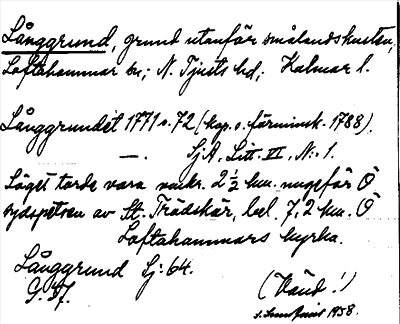 Långgrund, grund utanför smålandskusten,
Loftahammar sn; N. Tjusts hd; Kalmar l.
Långgrundet 1771 o. 72 (kop. o. förminsk. 1788).
— . SjA, Litt. VI, N: 1.
Läget torde vara omkr. 2 1/2 km. ungefär Ö
sydspetsen av St. Trädskär, bel. 7,2 km. Ö
Loftahammars kyrka.
Långgrund Sj: 64.
(Vänd!)
1958.